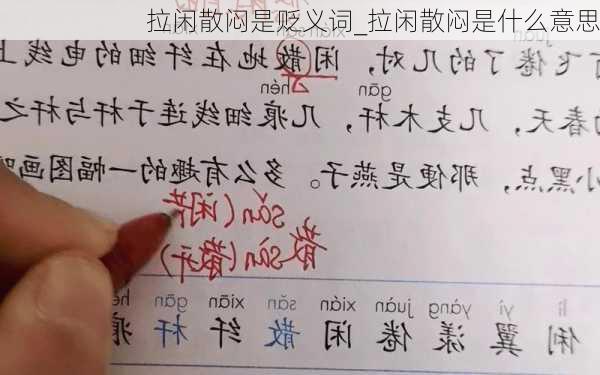 拉闲散闷是贬义词_拉闲散闷是什么意思
飞倦了的几对，闲散地在纤细的电线上
gān hén
春天，几支木杆，几痕细线连于杆与杆之
小黑点，那便是燕子。多么有趣的一幅图画
sǎn(闲
散 sàn(散开)
lì yì yàng juàn xián sǎn xiān gān
俐 翼 漾 倦 闲 散 纤 杆 痕